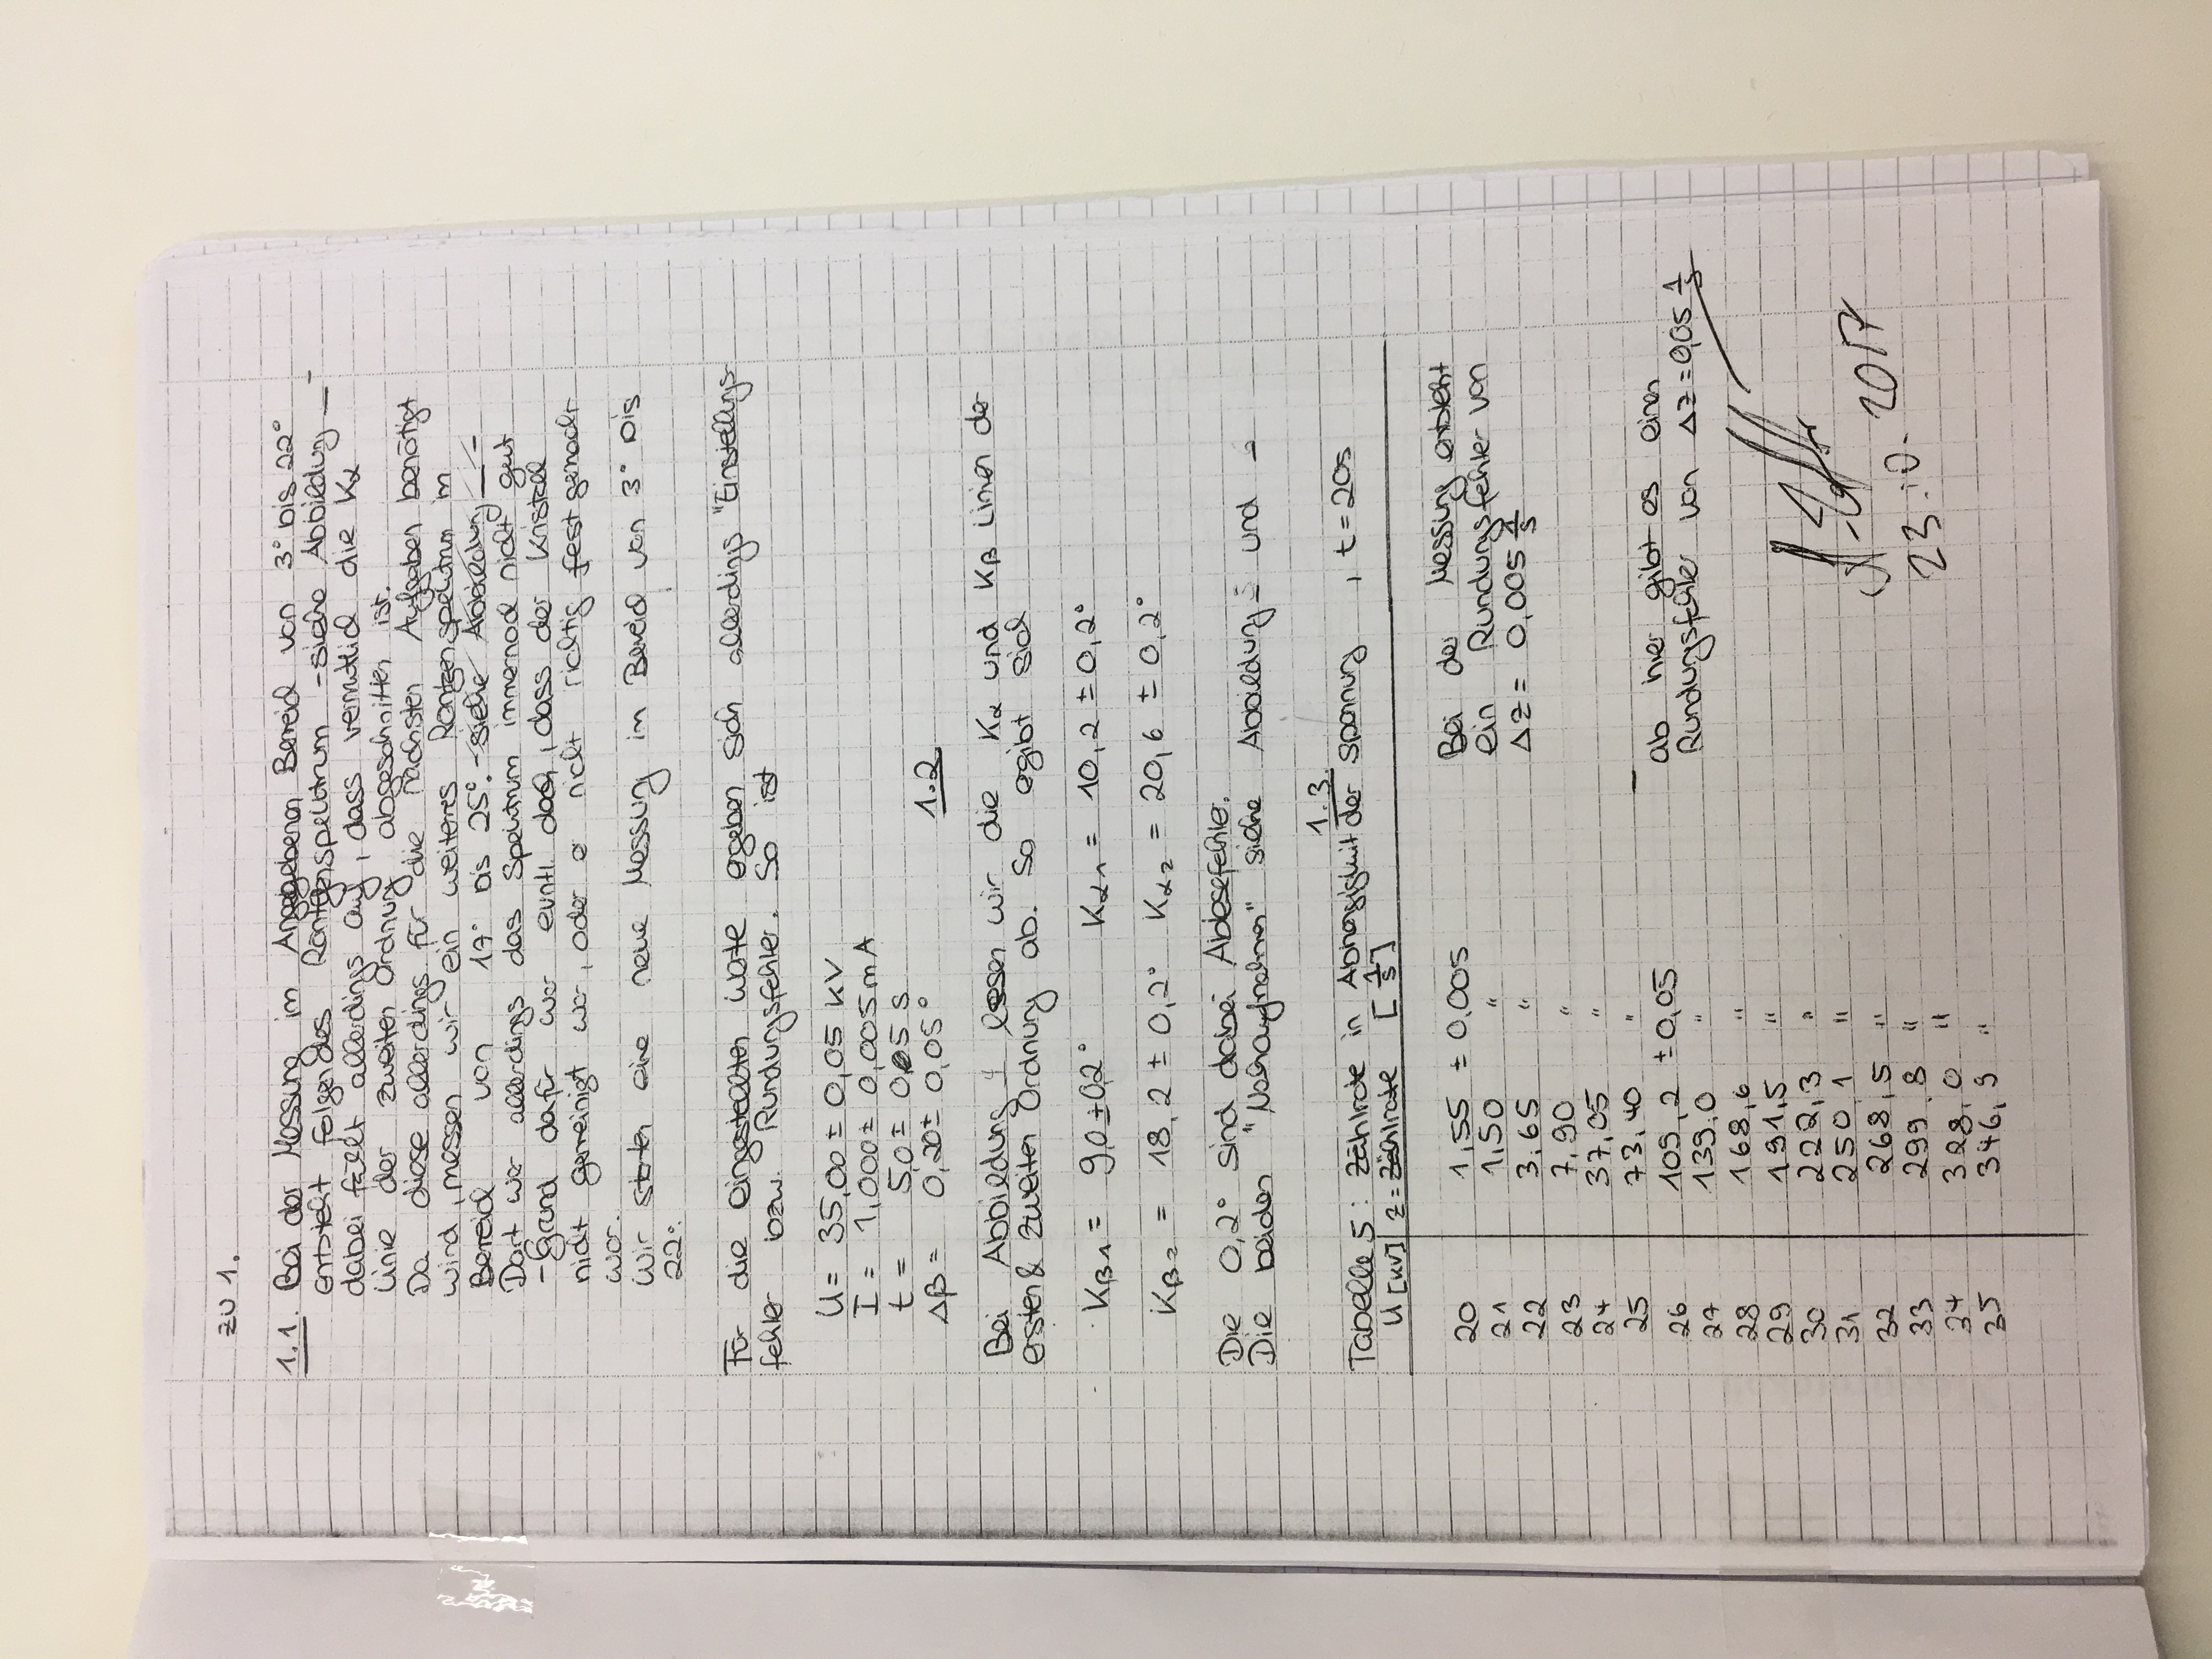 zu 1.
1.1. Bei der Messung im Angegebenen Bereich von 3° bis 22°
entsteht folgendes Röntgenspektrum - siehe Abbildung _ -
dabei fällt allerdings auf, dass vermutlich die Kα
Linie der zweiten Ordnung abgeschnitten ist.
Da diese allerdings für die nächsten Aufgaben benötigt
wird, messen wir ein weiteres Röntgenspektrum im
Bereich von 17° bis 25°. - siehe Abbildung _ -
Dort war allerdings das Spektrum immernoch nicht gut
- Grund dafür war evntl. doch, dass der Kristall
nicht gereinigt war, oder er nicht richtig fest gemacht
war.
Wir starten eine neue Messung im Bereich von 3° bis
22°.
Für die eingestellten Werte ergeben sich allerdings "Einstellungs-
fehler bzw. Rundungsfehler. So ist
U = 35,00 ± 0,05 kV
I = 1,000 ± 0,005 mA
t = 5,0 ± 0,05 s
Δβ = 0,20 ± 0,05°
1.2
Bei Abbildung 4 lesen wir die Kα und Kβ Linien der
ersten & zweiten Ordnung ab. So ergibt sich
Kβ1 = 9,0 ± 0,2° Kα1 = 10,2 ± 0,2°
Kβ2 = 18,2 ± 0,2° Kα2 = 20,6 ± 0,2°
Die 0,2° sind dabei Ablesefehler.
Die beiden "Nahaufnahmen" siehe Abbildung 5 und
1.3.
Tabelle 5: Zählrate in Abhängigkeit der Spannung , t = 20s
U [kV] z = Zählrate [1/s]
20 1,55 ± 0,005 Bei der Messung entsteht
21 1,50 " ein Rundungsfehler von
22 3,65 " Δz = 0,005 1/s
23 7,90 "
24 37,05 "
25 73,40 "
26 109,2 ± 0,05 ab hier gibt es einen
27 139,0 " Rundungsfehler von Δz = 0,05 1/s
28 168,6 "
29 191,5 "
30 222,3 "
31 250,1 "
32 268,5 "
33 299,8 "
34 328,0 "
35 346,9 "
23.10.2017